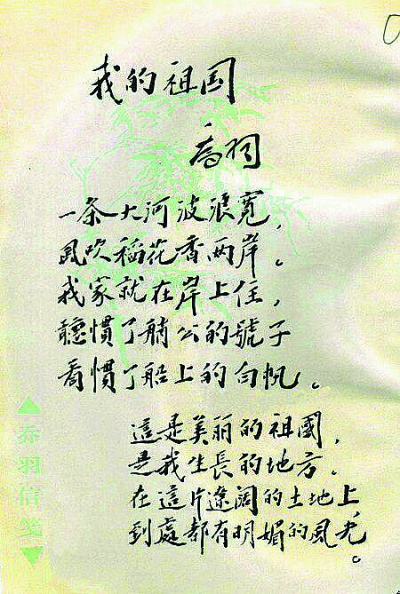 我的祖国
喬羽
一条大河波浪宽，
風吹稻花香两岸。
我家就在岸上住，
聽慣了艄公的號子
看慣了船上的白帆。
這是美丽的祖國，
是我生長的地方．
在這片遼阔的土地上，
到處都有明媚的風光。
乔羽信笺